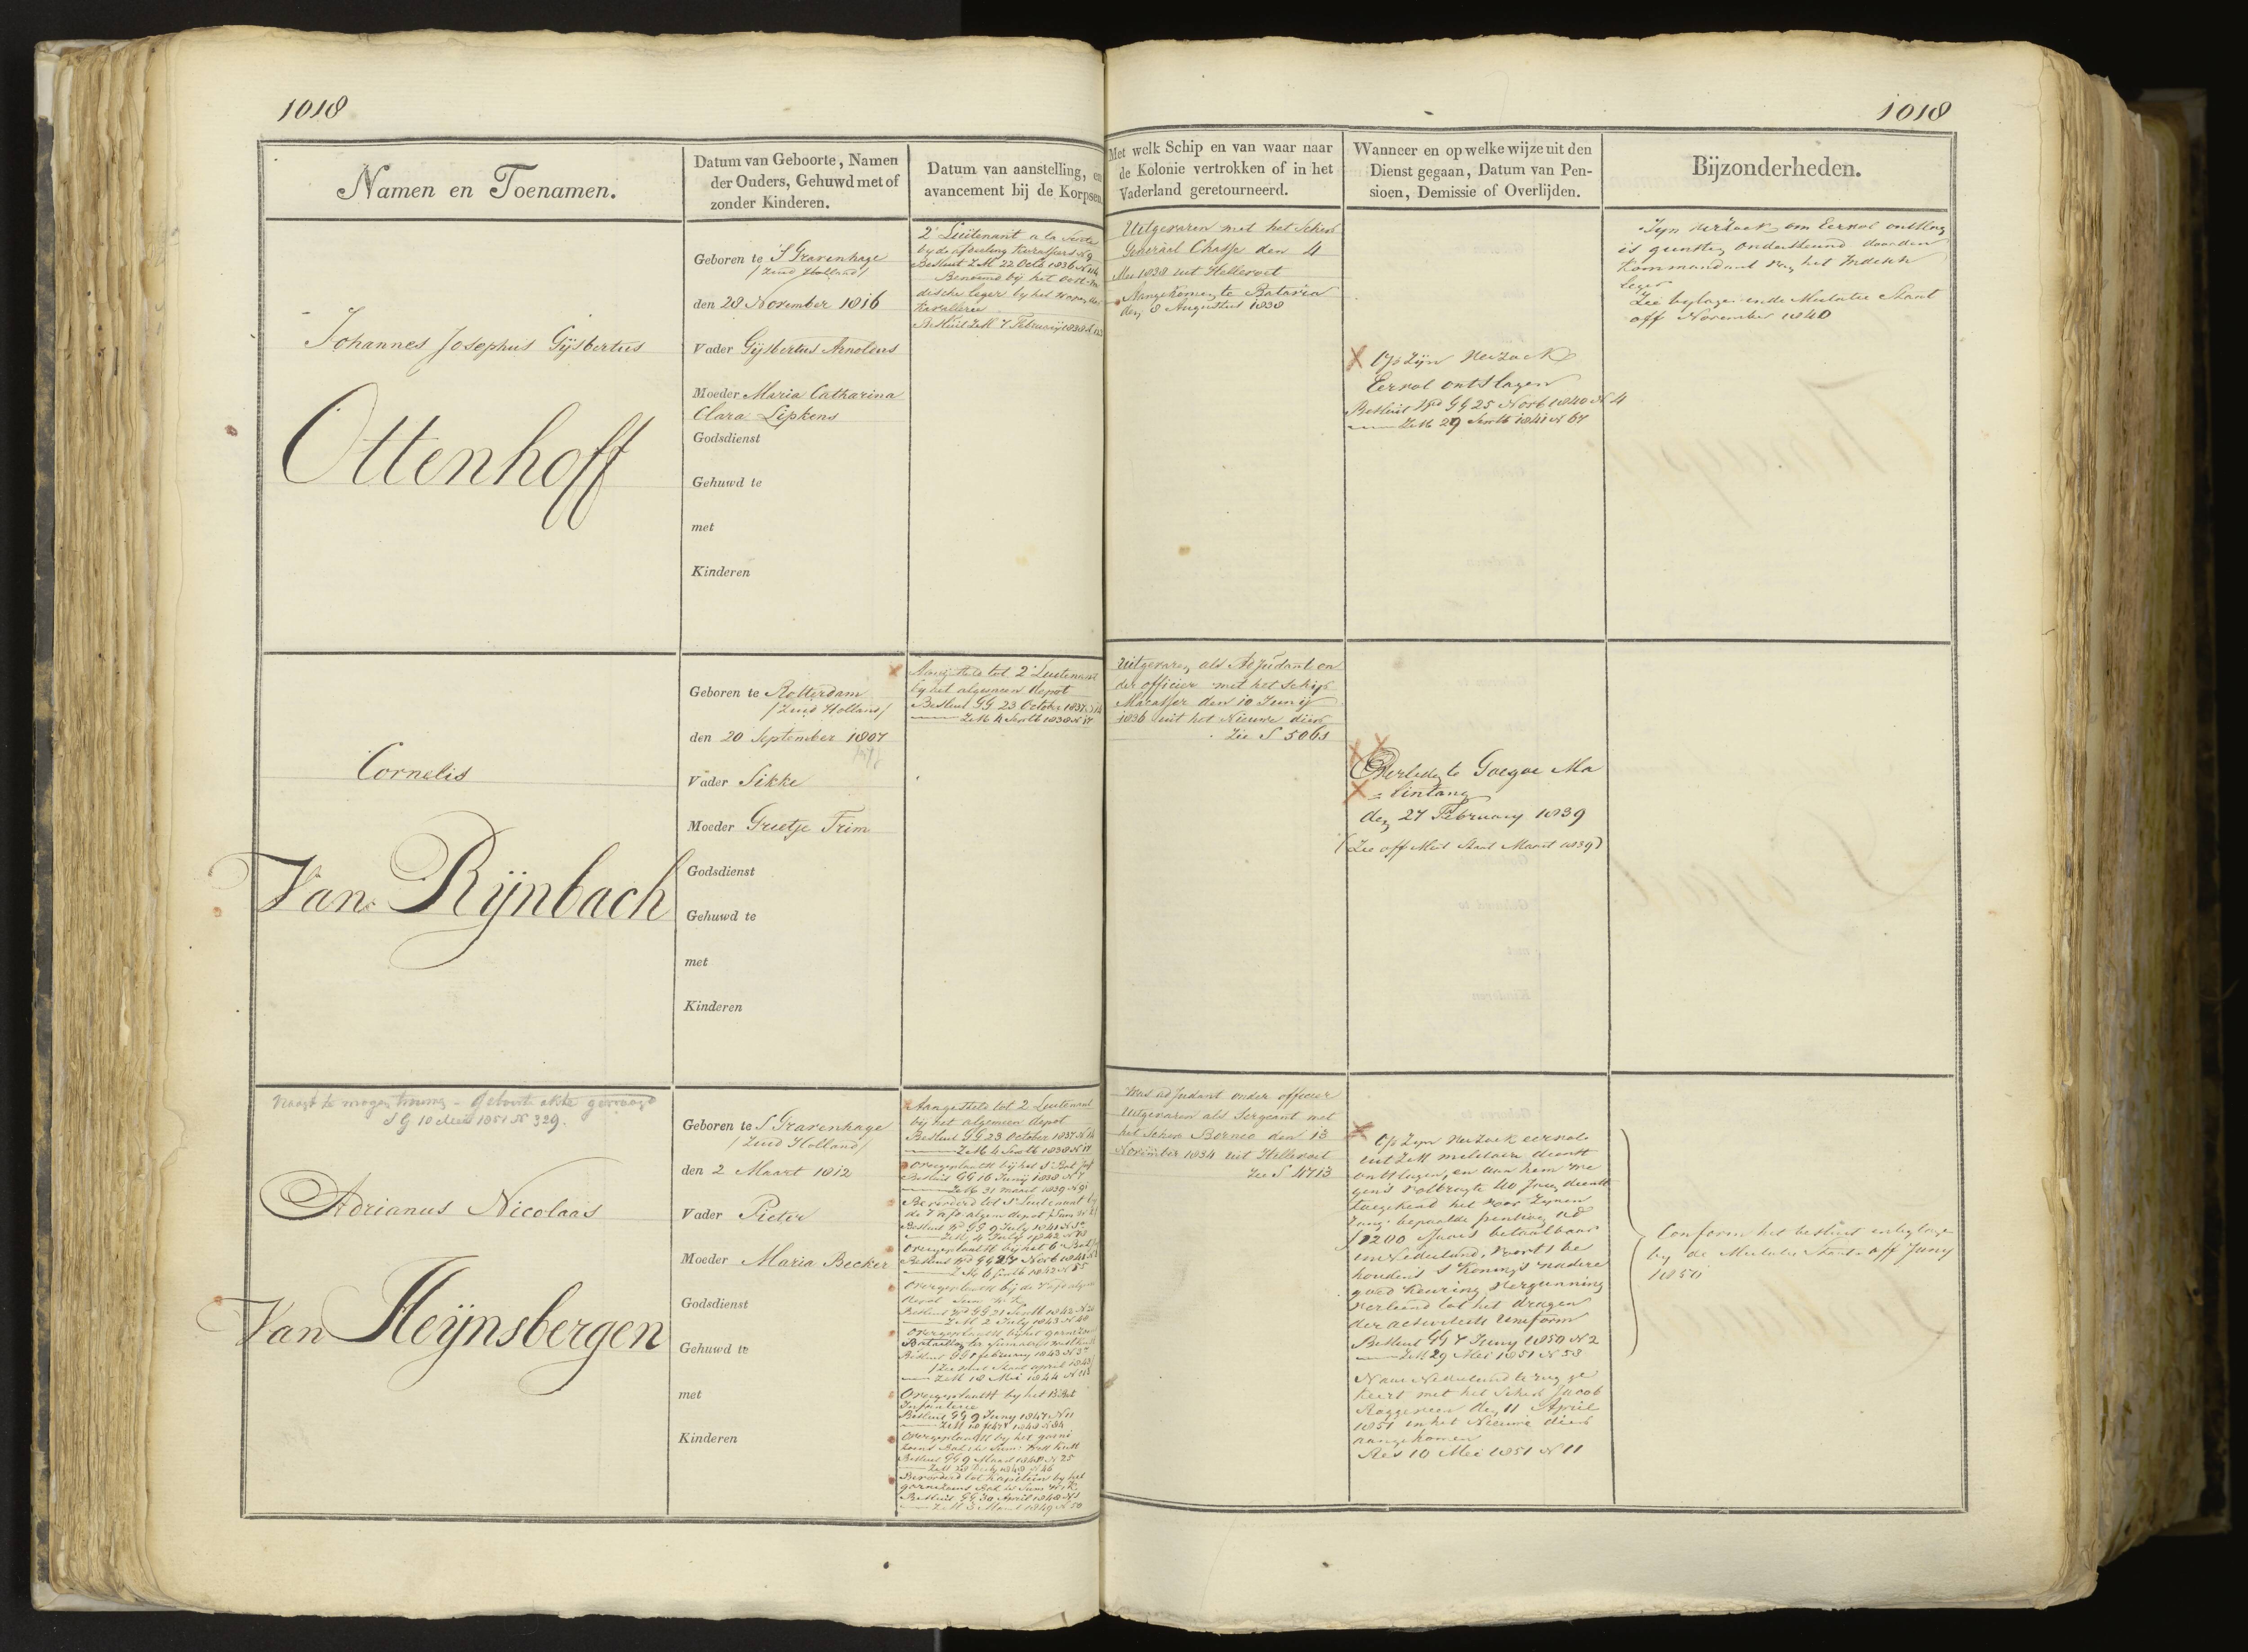 1018
1018
Namen en Toenamen.
Datum van Geboorte, Namen
der Ouders, Gehuwd met of
zonder Kinderen.
Datum van aanstelling, en
avancement bij de Korpsen.
Met welk Schip en van waar naar
de Kolonie vertrokken of in het
Vaderland geretourneerd.
Wanneer en op welke wijze uit den
Dienst gegaan, Datum van Pen-
sioen, Demissie of Overlijden.
Bijzonderheden.
Johannes Josephus Gijsbertus
Ottenhoff
Geboren te S Gravenhage
/Zuid Holland/
den 28 November 1816
Vader Gijsbertus Arnoldus
Moeder Maria Catharina
Clara Lipkens
Godsdienst
Gehuwd te
met
Kinderen
2e Luitenant a la Suite
by de afdeeling Kurassiers N 9
Besluit ZM 22 Octb 1836
Benoemd bij het Oost-In
dische leger by het Wapen der
Kavallerie
Besluit ZM 7 Februarij 1838
Uitgevaren met het Schip
Generaal Chasse den 4
Mei 1838 uit Hellevoet
Aangekomen te Batavia
den 8 Augustus 1838
X Op zijn verzoek
Eervol ontslagen
Besluit Wd GG 25 Novb 1840 N 4
ZM 29 Septb 1841 N 67
Zijn verzoek om Eervol ontslag
is gunstig ondersteund door den
Kommandant van het Indisch
Leger
Zie bylage in de Mutatie Staat
off November 1840
Cornelis
Van Rijnbach
Geboren te Rotterdam
/Zuid Holland/
den 20 September 1807
Vader Sikke
Moeder Grietje Trim
Godsdienst
Gehuwd te
met
Kinderen
X Aangesteld tot 2e Luitenant
by het algemeen depot
Besluit GG 23 October 1837 N 14
ZM 4 Septb 1838 N 17
Uitgevaren als Adjudant on
der officier met het Schip
Macasser den 10 Junij
1836 uit het Nieuwe diep
Zie S 5061
X X
Overleden te Goegoe Ma
X = lintang
den 27 February 1839
(Zie off Mut Staat Maart 1839)
S G 10 Mei 1851 N 329.
Adrianus Nicolaas
Van Heijnsbergen
Geboren te S Gravenhage
/Zuid Holland/
den 2 Maart 1812
Vader Pieter
Moeder Maria Becker
Godsdienst
Gehuwd te
met
Kinderen
Aangesteld tot 2 Luitenant
bij het algemeen depot
Besluit GG 23 October 1837 N 14
ZM 4 Septb 1838 N 17
Overgeplaatst bij het
Besluit GG 16 Junij 1838 N 7
ZM 31 Maart 1839 N 91
Bevorderd tot 1e Luitenant by
de 7 afd algem depot
Besluit Wd GG 9 July 1841
ZM 4 July 1842
Overgeplaatst bij het 6e Bat
Besluit Wd GG 27 Novb 1841
ZM 6 Septb 1842 N 55
Overgeplaatst bij de
Besluit Wd GG 21 Septb 1842
ZM 2 July 1843 N 48
Overgeplaatst by het garnizoen
Bataillon ter Sumatras westkust
Besluit GG February 1843
/Zie mut Staat april 1843/
ZM 18 Mei 1844
Overgeplaatst by het 13 Bat
Infanterie
Besluit GG 9 Juny 1847 N 11
Overgeplaatst by het garni
Besluit GG 9 Maart 1848 N 25
Bevorderd tot Kapitein by het
Besluit GG 30 April 1848 N 1
ZM 3 Maart 1849 N 50
Was adjudant onder officier
Uitgevaren als Sergeant met
het Schip Borneo den 13
November 1834 uit Hellevoet
Zie S 4713
Op zyn verzoek eervol
uit ZM militairn dienst
ontslagen, en aan hem we
gens volbragte 40 jarig dienst
toegekend het voor zynen
rang bepaalde pensioen ad
ƒ1200 Jaars betaalbaar
in Nederland, voorts be
houdens s Konings nadere
goed keuring vergunning
verleend tot het dragen
der activiteits Uniform
Besluit GG 7 Juny 1850 N 2
ZM 29 Mei 1851 N 53
Naar Nederland terug ge
keert met het Schip Jacob
Roggeveen den 11 April
1851 in het Nieuwe diep
aangekomen
Res 10 Mei 1851 N 11
Conform het besluit en bylage
by de Mutatie Staat off Juny
1850